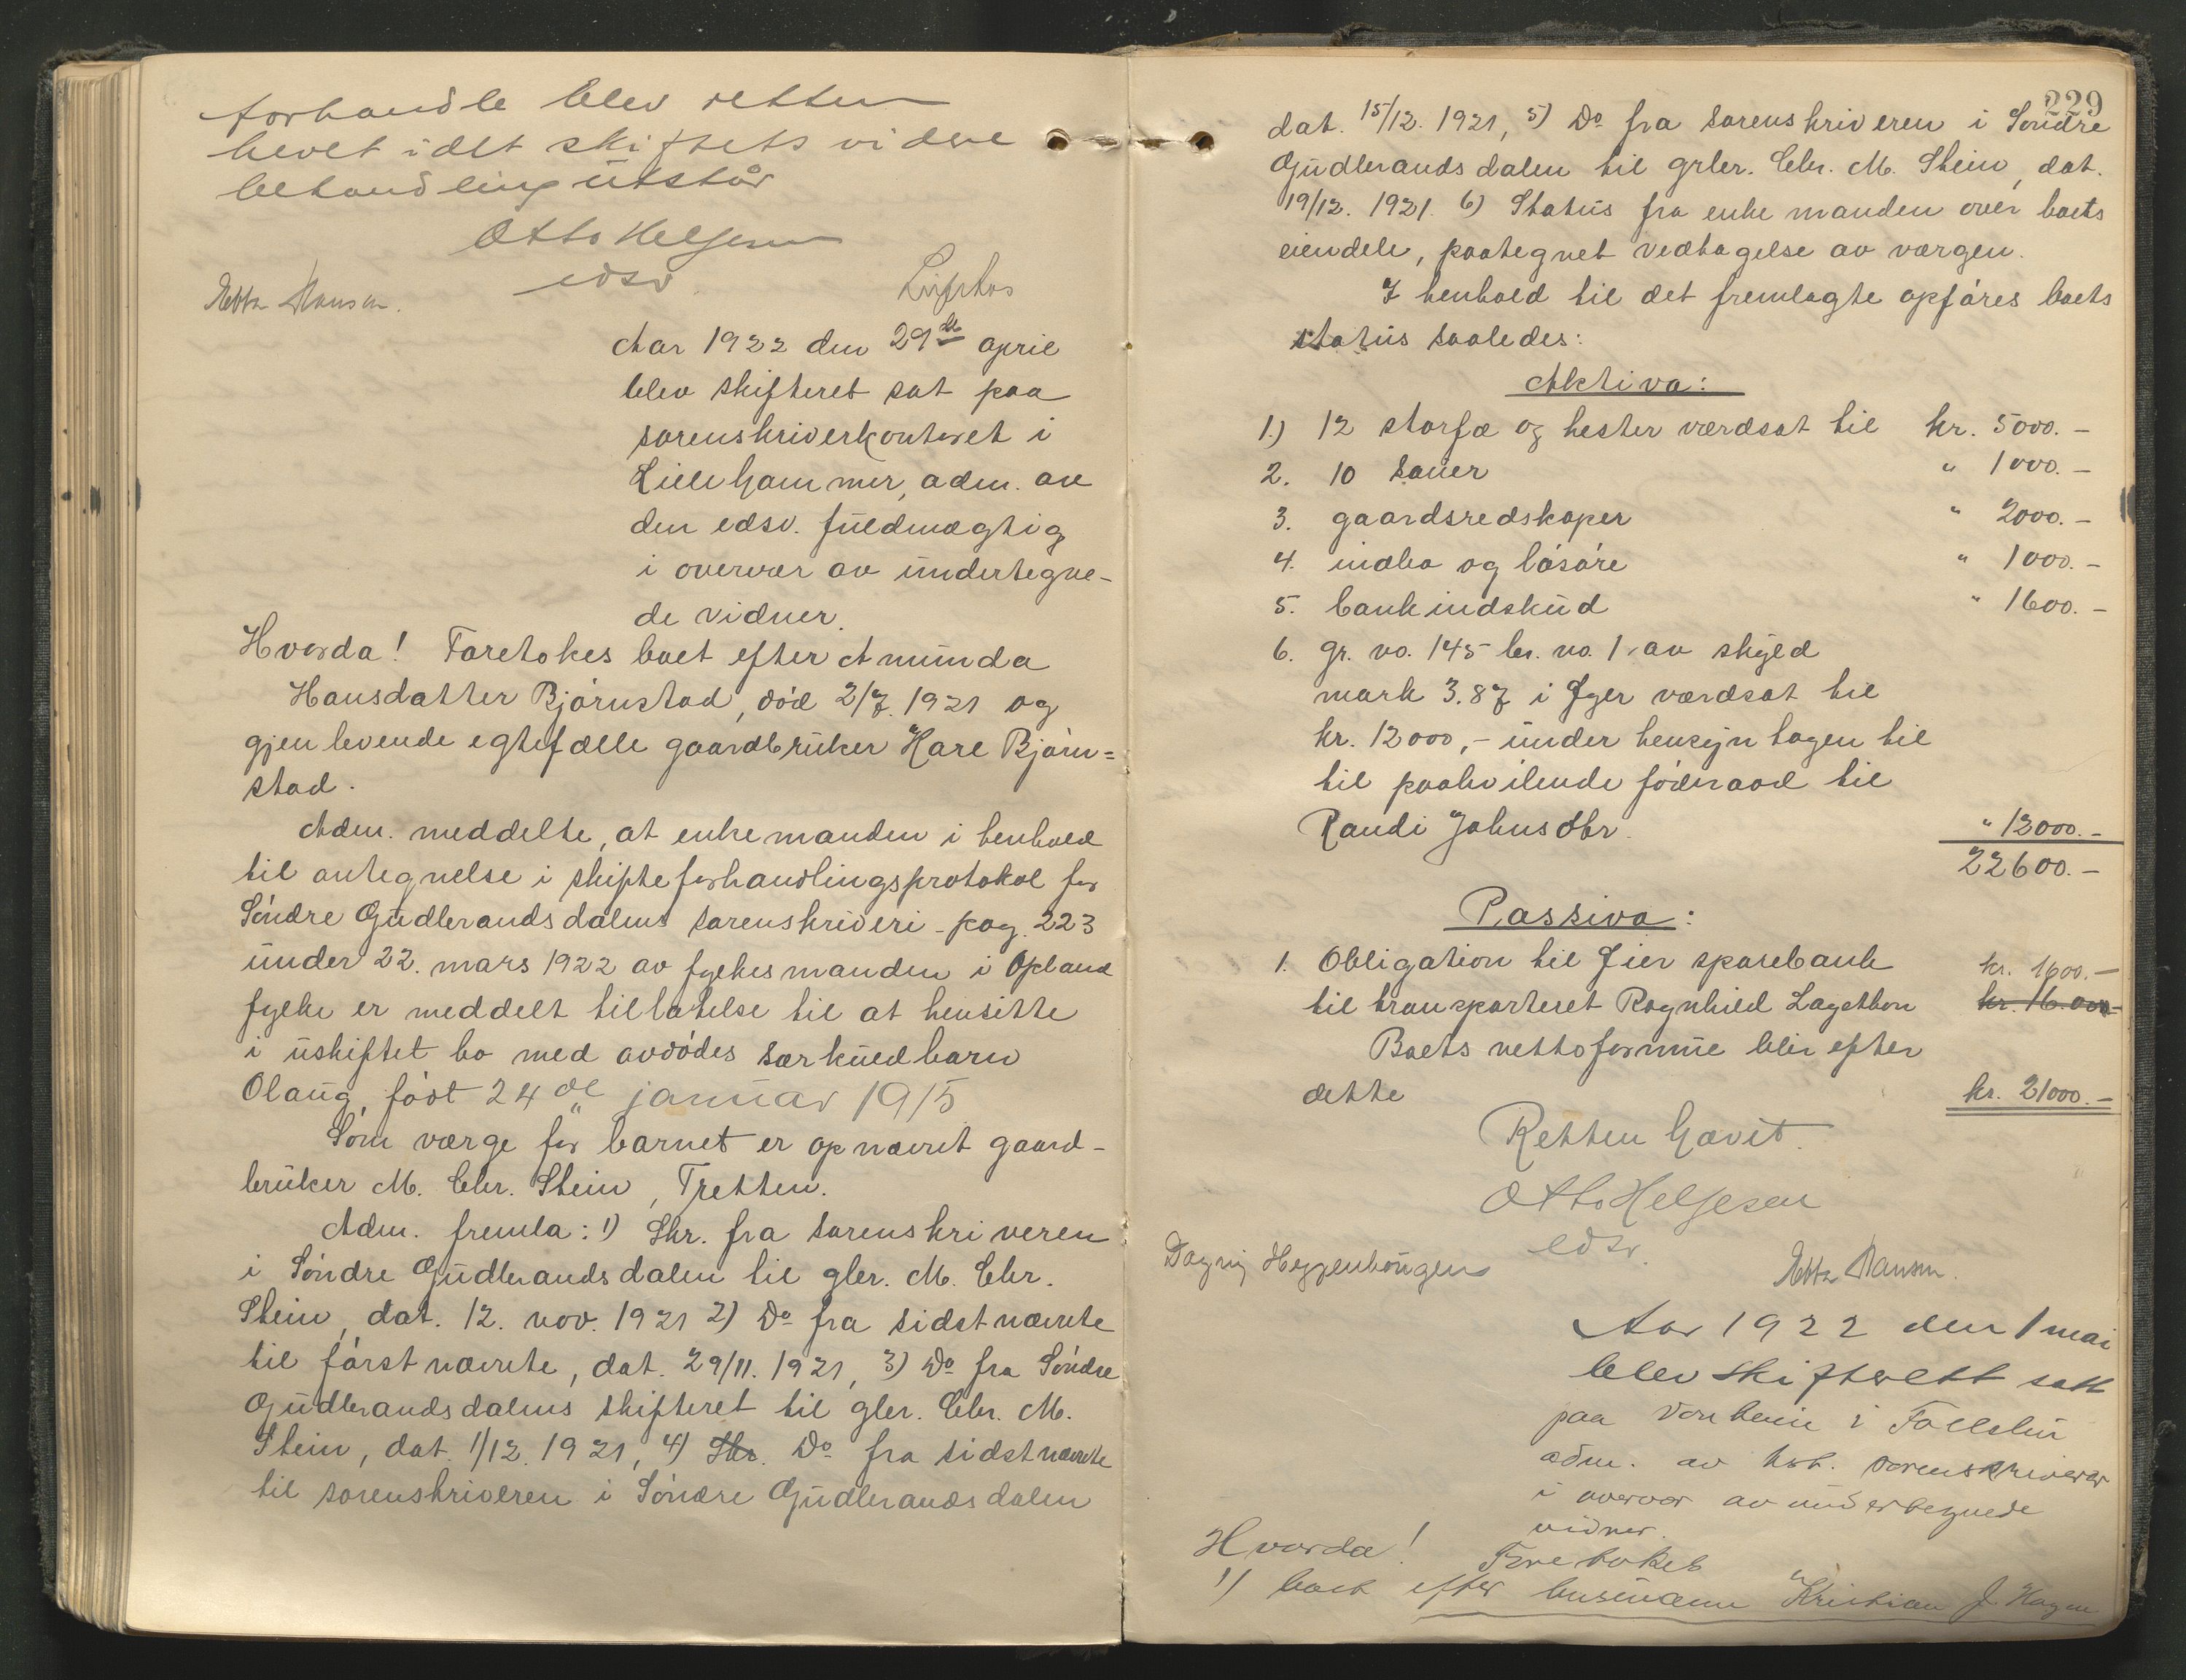 forhandle blev retten
hevet idet skiftets videre
behandling utstår
Otto Helgesen
edsv
Ebba Hansen.
Aar 1922 den 29de april
blev skifteret sat paa
sorenskriverkontoret i
Lillehammer, adm. av
den edsv. fuldmægtig
i overvær av undertegne-
de vidner.
Hvorda! Foretokes boet efter Amunda
Hansdatter Bjørnstad, død 2/7. 1921 og
gjenlevende egtefælle gaardbruker Hare Bjørn=
stad.
Adm. meddelte, at enkemanden i henhold
til antegnelse i skifteforhandlingsprotokol for
Søndre Gudbrandsdalens sorenskriveri - pag. 223
under 22. mars 1922 av fylkesmanden i Opland
fylke er meddelt tillatelse til at hensitte
i uskiftet bo med avdødes særkuldbarn
Olaug, født 24de januar 1915
Som værge for barnet er opnævnt gaard-
bruker M. Chr. Stein, Tretten.
Adm. fremla: 1) Skr. fra sorenskriveren
i Søndre Gudbrandsdalen til gbr. M. Chr.
Stein, dat. 12. nov. 1921 2) Do fra sidstnævnte
til førstnævnte, dat. 29/11. 1921, 3) Do fra Søndre
Gudbrandsdalens skifteret til gbr. Chr. M.
Stein, dat. 1/12. 1921, 4) Skr. Do fra sidstnævnte
til sorenskriveren i Søndre Gudbrandsdalen
229
dat. 15/12. 1921, 5) Do fra sorenskriveren i Søndre
Gudbrandsdalen til grbr. Chr. M. Stein, dat.
19/12. 1921. 6) Status fra enkemanden over boets
eiendele, paategnet vedtagelse av værgen.
I henhold til det fremlagte opføres boets
status saaledes:
Aktiva:
1.) 12 storfæ og hester værdsat til kr. 5000.-
2. 10 sauer " 1000.-
3. gaardsredskaper " 2000.-
4. indbo og løsøre " 1000.-
5. bankindskud " 1600.-
6. gr. no. 145 br. no. 1. av skyld
mark 3.87 i Øyer værdsat til
kr. 12000,- under hensyn tagen til
til paahvilende føderaad til
Randi Johnsdtr. " 12000.-
22600.-
Passiva:
1. Obligation til Øier sparebank kr. 1600.-
til transporteret Ragnhild Lagethon kr. 16.000-
Boets nettoformue blir efter
dette kr. 21000.-
Retten hævit.
Otto Helgesen
edsv.
Dagny Heggenhougen
Ebba Hansen.
Aar 1922 den 1 mai
blev skifterett satt
paa Vonheim i Follebu
adm. av kst. sorenskriver
i overvær av undertegnede
vidner.
Hvorda! Foretokes
1/ boet efter busmann Kristian J Hagen